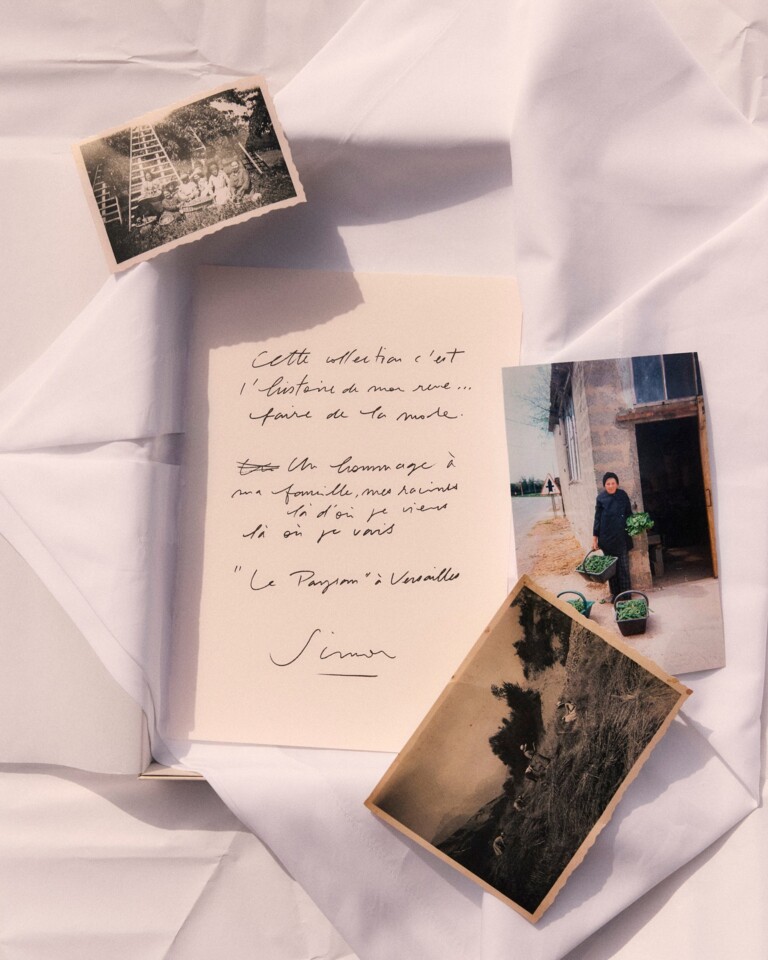 Cette collection c'est
l'histoire de mon reve...
faire de la mode.
Un hommage à
ma famille, mes racines
là d'où je viens
là où je vais
"Le Paysan" à Versailles
Simon